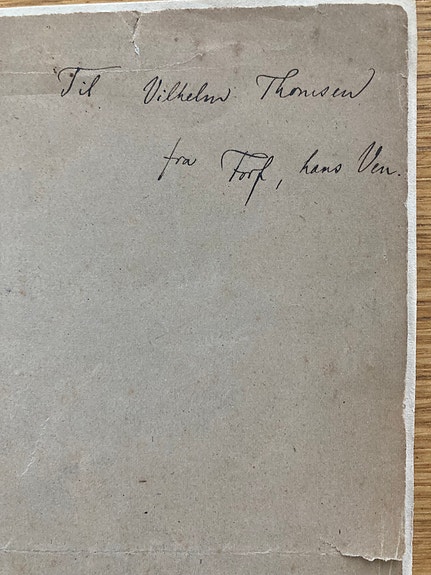 Til Vilhelm Thomsen
fra Forf, hans Ven.